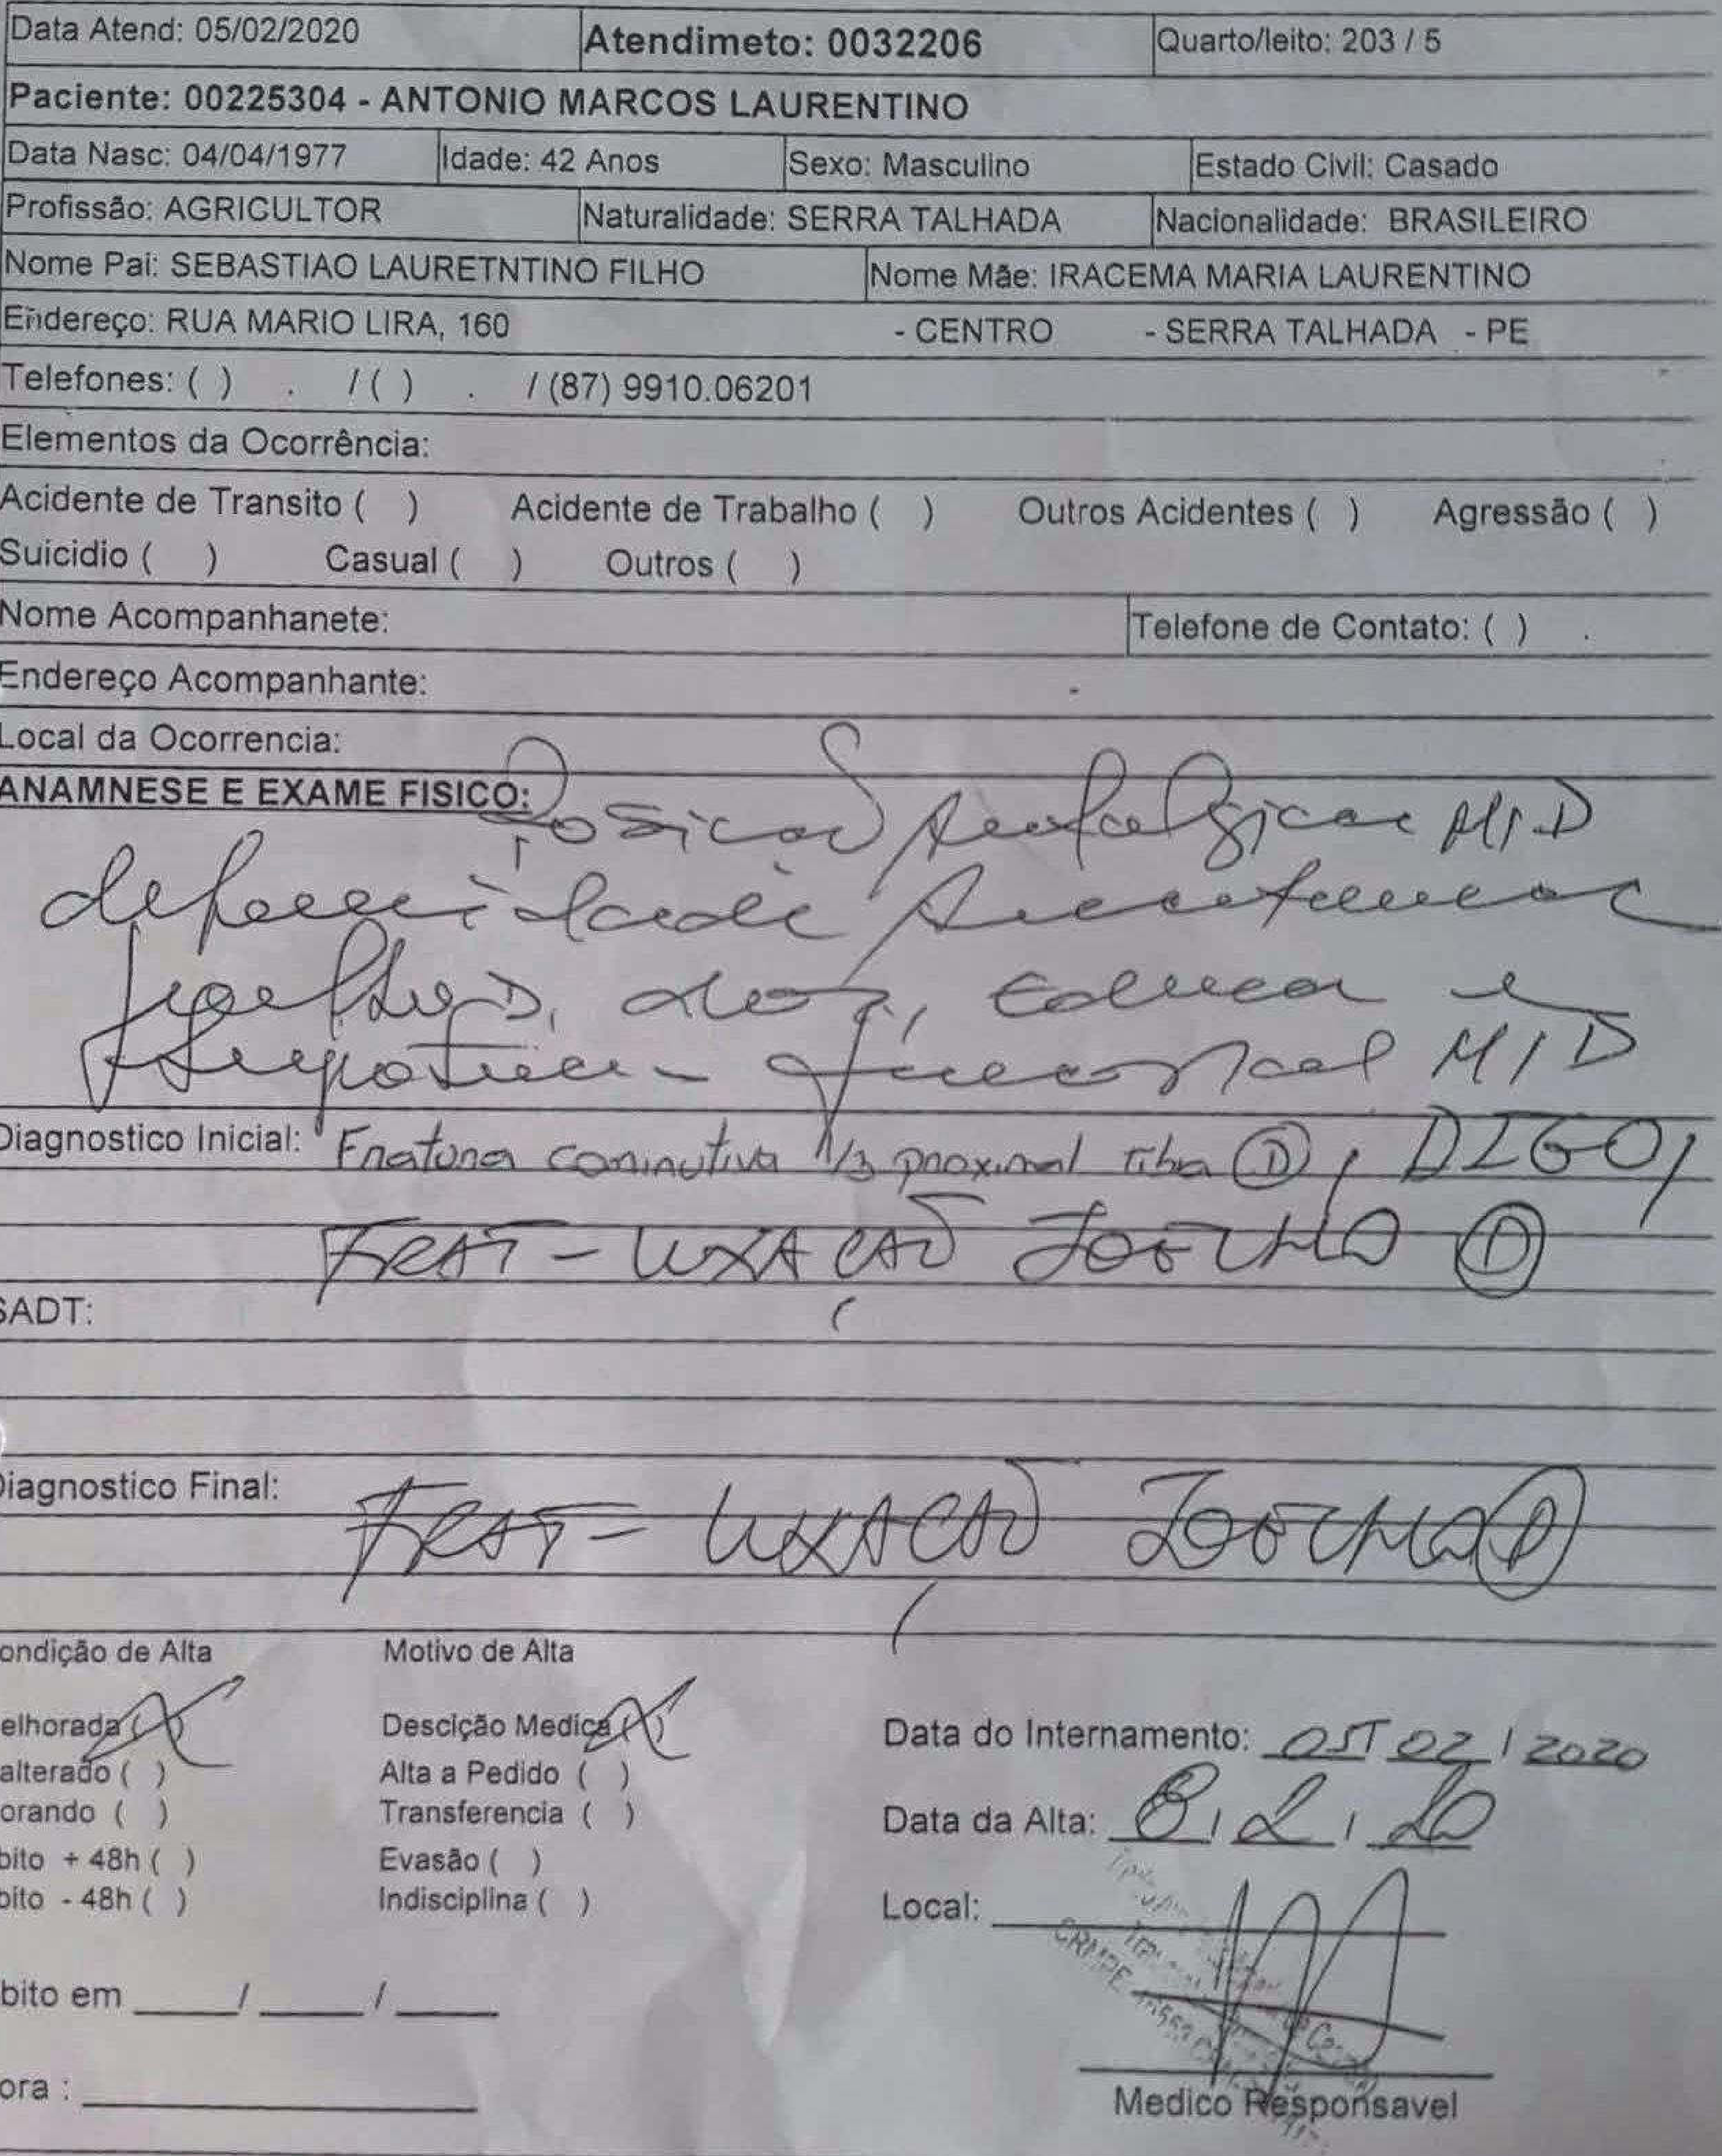 Data Atend: 05/02/2020 Atendimeto: 0032206 Quarto/leito: 203 / 5
Paciente: 00225304 - ANTONIO MARCOS LAURENTINO
Data Nasc: 04/04/1977 Idade: 42 Anos Sexo: Masculino Estado Civil: Casado
Profissão: AGRICULTOR Naturalidade: SERRA TALHADA Nacionalidade: BRASILEIRO
Nome Pai: SEBASTIAO LAURETNTINO FILHO Nome Mãe: IRACEMA MARIA LAURENTINO
Endereço: RUA MARIO LIRA, 160 - CENTRO - SERRA TALHADA - PE
Telefones: ( ) . / ( ) . / (87) 9910.06201
Elementos da Ocorrência:
Acidente de Transito ( ) Acidente de Trabalho ( ) Outros Acidentes ( ) Agressão ( )
Suicidio ( ) Casual ( ) Outros ( )
Nome Acompanhanete: Telefone de Contato: ( ) .
Endereço Acompanhante:
Local da Ocorrencia:
ANAMNESE E EXAME FISICO: Posicao Antalgica MID
deformidade
joelho D, dor, edema e
impotencia funcional MID
Diagnostico Inicial: Fratura cominutiva 1/3 proximal tibia (D),
FRAT - LUXAÇÃO JOELHO (D)
SADT:
Diagnostico Final: FRAT - LUXAÇÃO JOELHO (D)
ondição de Alta Motivo de Alta
elhorada (X) Descição Medica (X) Data do Internamento: 05/02/2020
alterado ( ) Alta a Pedido ( )
orando ( ) Transferencia ( ) Data da Alta: 8/2/20
bito + 48h ( ) Evasão ( )
bito - 48h ( ) Indisciplina ( ) Local:
CRM/PE
bito em ____/____/____
ora :
Medico Responsavel